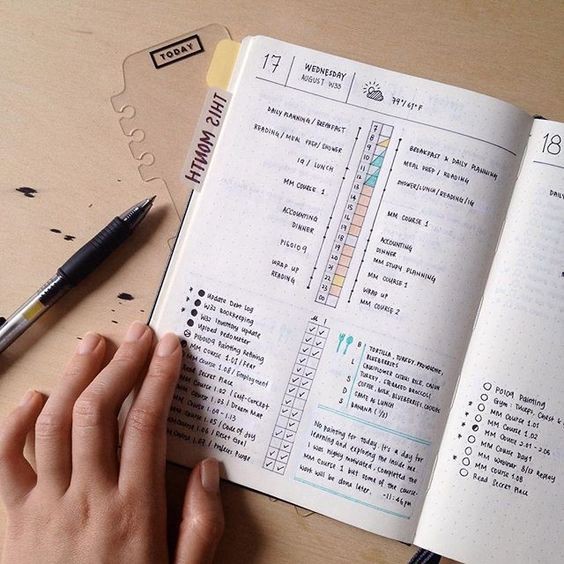 TODAY
THIS MONTH
17
WEDNESDAY
AUGUST W33
79°/61°F
DAILY PLANNING / BREAKFAST
READING / MEAL PREP / SHOWER
IG / LUNCH
MM COURSE 1
ACCOUNTING
DINNER
PI6109
WRAP UP
READING
7
8
9
10
11
12
13
14
15
16
17
18
19
20
21
22
23
00
BREAKFAST & DAILY PLANNING
MEAL PREP / READING
SHOWER/LUNCH/READING/IG
MM COURSE 1
ACCOUNTING
DINNER
MM STUDY PLANNING
MM COURSE 1
WRAP UP
MM COURSE 2
Update Debt Log
W33 Bookkeeping
W33 Inventory Update
Upload Pedometer
PI6109 Painting Refining
MM Course 1.01 / Fear
Read Secret Place
MM Course 1.08 / Employment
MM Course 1.02 / Self-Concept
MM Course 1.03 / Dream Mar
MM Course 1.09 - 1.13
MM Course 1.05 / Code of Joy
MM Course 1.06 / Reset Goal
MM Course 1.07 / Process Purge
M
B TORTILLA, TURKEY, PROVOLONE,
BLUEBERRIES
L CAULIFLOWER CURRY RICE, CAJUN
TURKEY, STEAMED BROCCOLI
S COFFEE, MILK, BLUEBERRIES, CHOCOS
D SAME AS LUNCH
S BANANA
No painting for today. It's a day for
learning and exploring the inside me.
I was highly motivated, completed the
MM Course 1 but some of the course-
work will be done later. -11:46pm
18
DAILY
PO109 Painting
Gym: Tricep, Chest &
MM Course 1.01
MM Course 1.02
MM Course 2.01 - 2.06
MM Course Day 1
MM Webinar 8/17 Replay
Read Secret Place